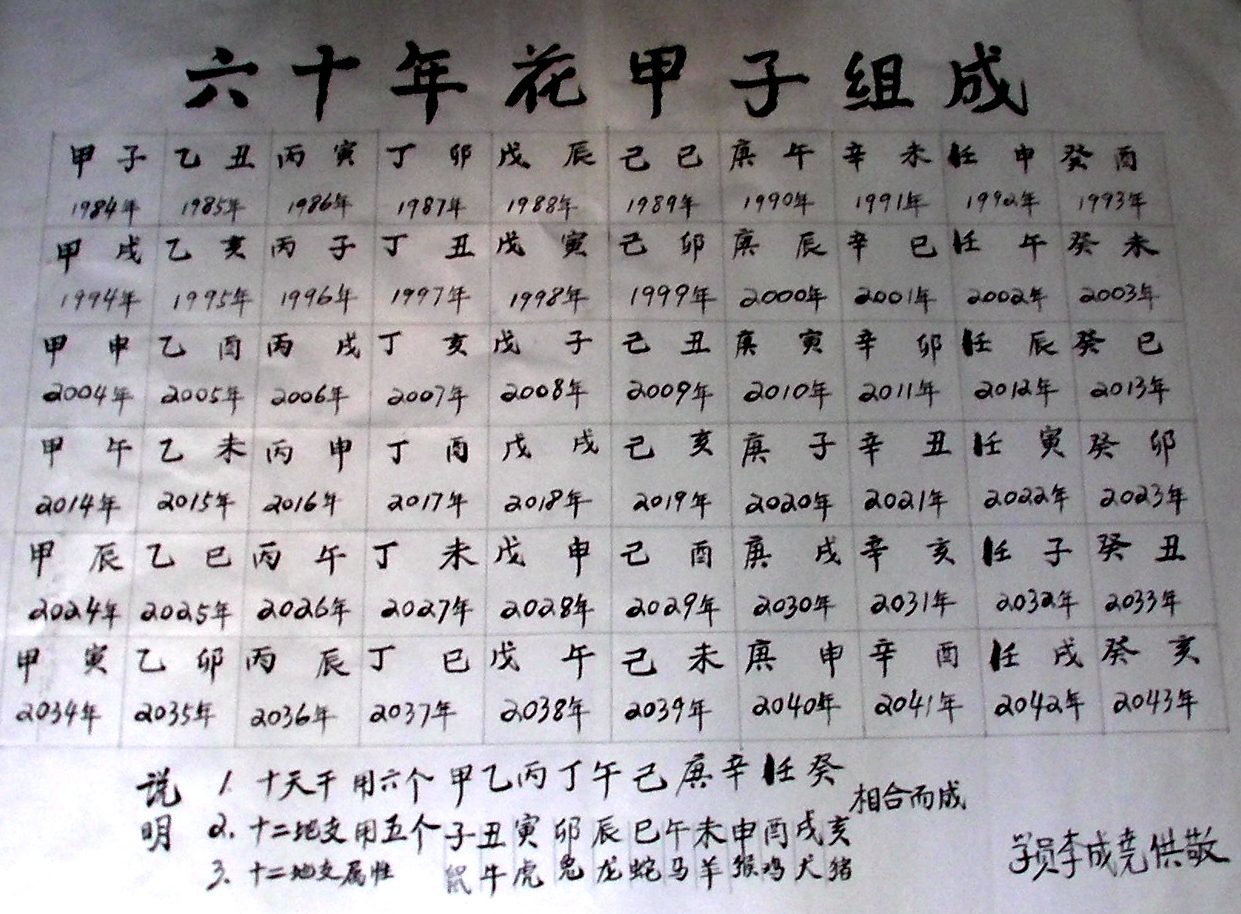 六十年花甲子组成
甲子 乙丑 丙寅 丁卯 戊辰 己巳 庚午 辛未 任申 癸酉
1984年 1985年 1986年 1987年 1988年 1989年 1990年 1991年 1992年 1993年
甲戌 乙亥 丙子 丁丑 戊寅 己卯 庚辰 辛巳 任午 癸未
1994年 1995年 1996年 1997年 1998年 1999年 2000年 2001年 2002年 2003年
甲申 乙酉 丙戌 丁亥 戊子 己丑 庚寅 辛卯 任辰 癸巳
2004年 2005年 2006年 2007年 2008年 2009年 2010年 2011年 2012年 2013年
甲午 乙未 丙申 丁酉 戊戌 己亥 庚子 辛丑 任寅 癸卯
2014年 2015年 2016年 2017年 2018年 2019年 2020年 2021年 2022年 2023年
甲辰 乙巳 丙午 丁未 戊申 己酉 庚戌 辛亥 任子 癸丑
2024年 2025年 2026年 2027年 2028年 2029年 2030年 2031年 2032年 2033年
甲寅 乙卯 丙辰 丁巳 戊午 己未 庚申 辛酉 任戌 癸亥
2034年 2035年 2036年 2037年 2038年 2039年 2040年 2041年 2042年 2043年
说明
1. 十天干用六个 甲乙丙丁午己庚辛任癸
2. 十二地支用五个 子丑寅卯辰巳午未申酉戌亥
相合而成
3. 十二地支属性 鼠牛虎兔龙蛇马羊猴鸡犬猪
学员李成尧供敬